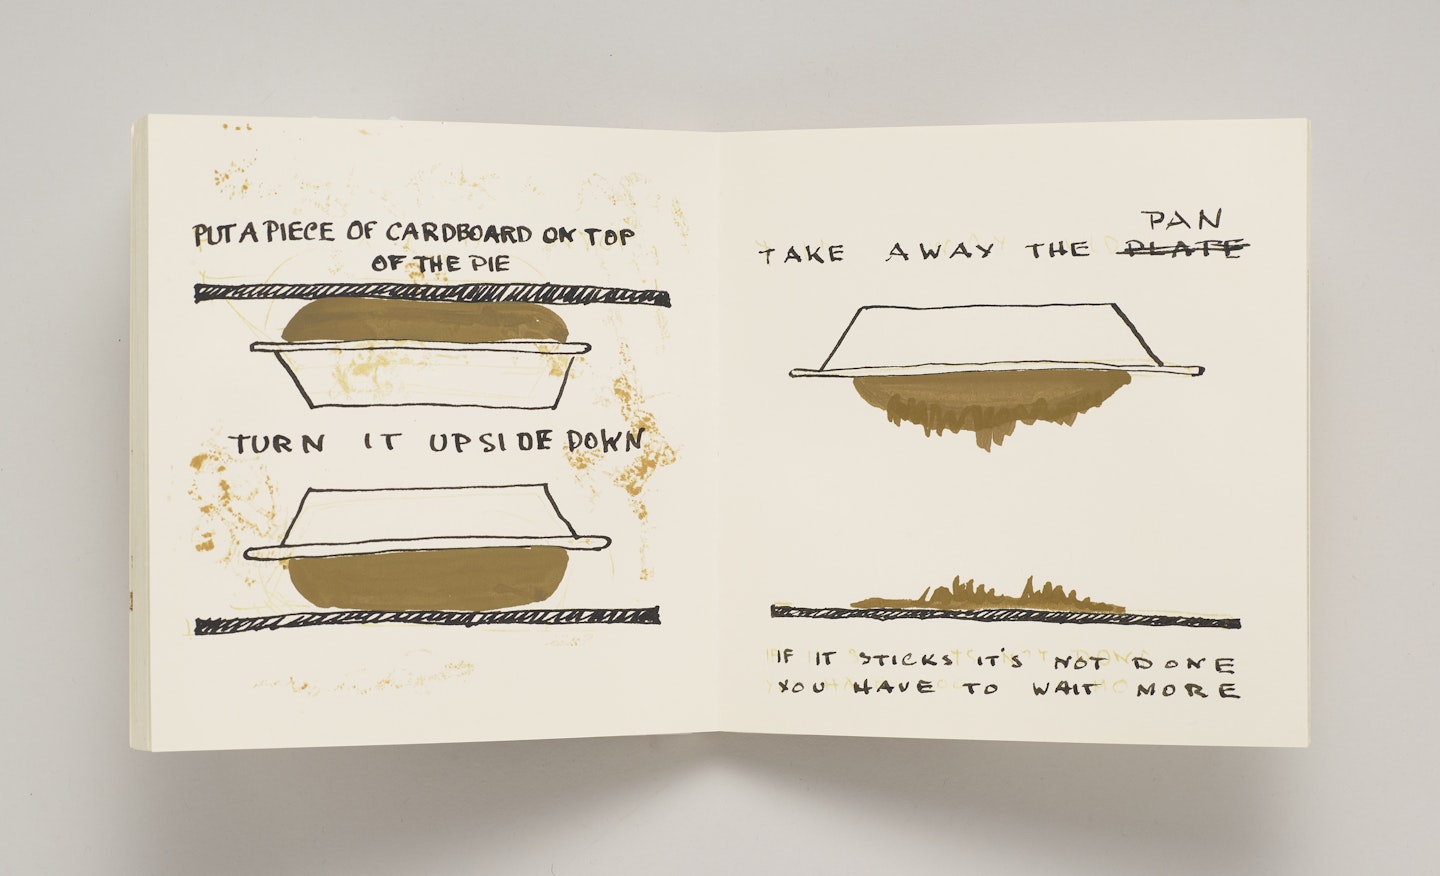 PUT A PIECE OF CARDBOARD ON TOP
OF THE PIE
TURN IT UPSIDE DOWN
PAN
TAKE AWAY THE PLATE
IF IT STICKS IT'S NOT DONE
YOU HAVE TO WAIT MORE